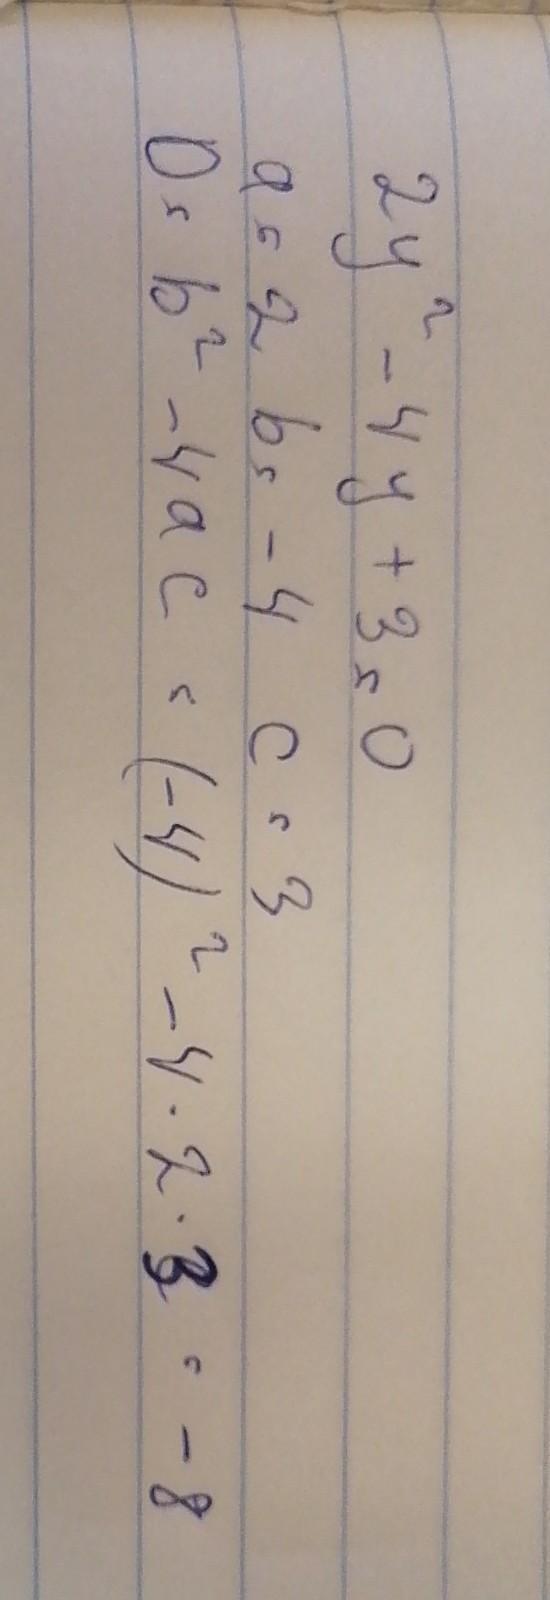 2y² - 4y + 3 = 0
a = 2 b = -4 c = 3
D = b² - 4ac = (-4)² - 4 · 2 · 3 = -8